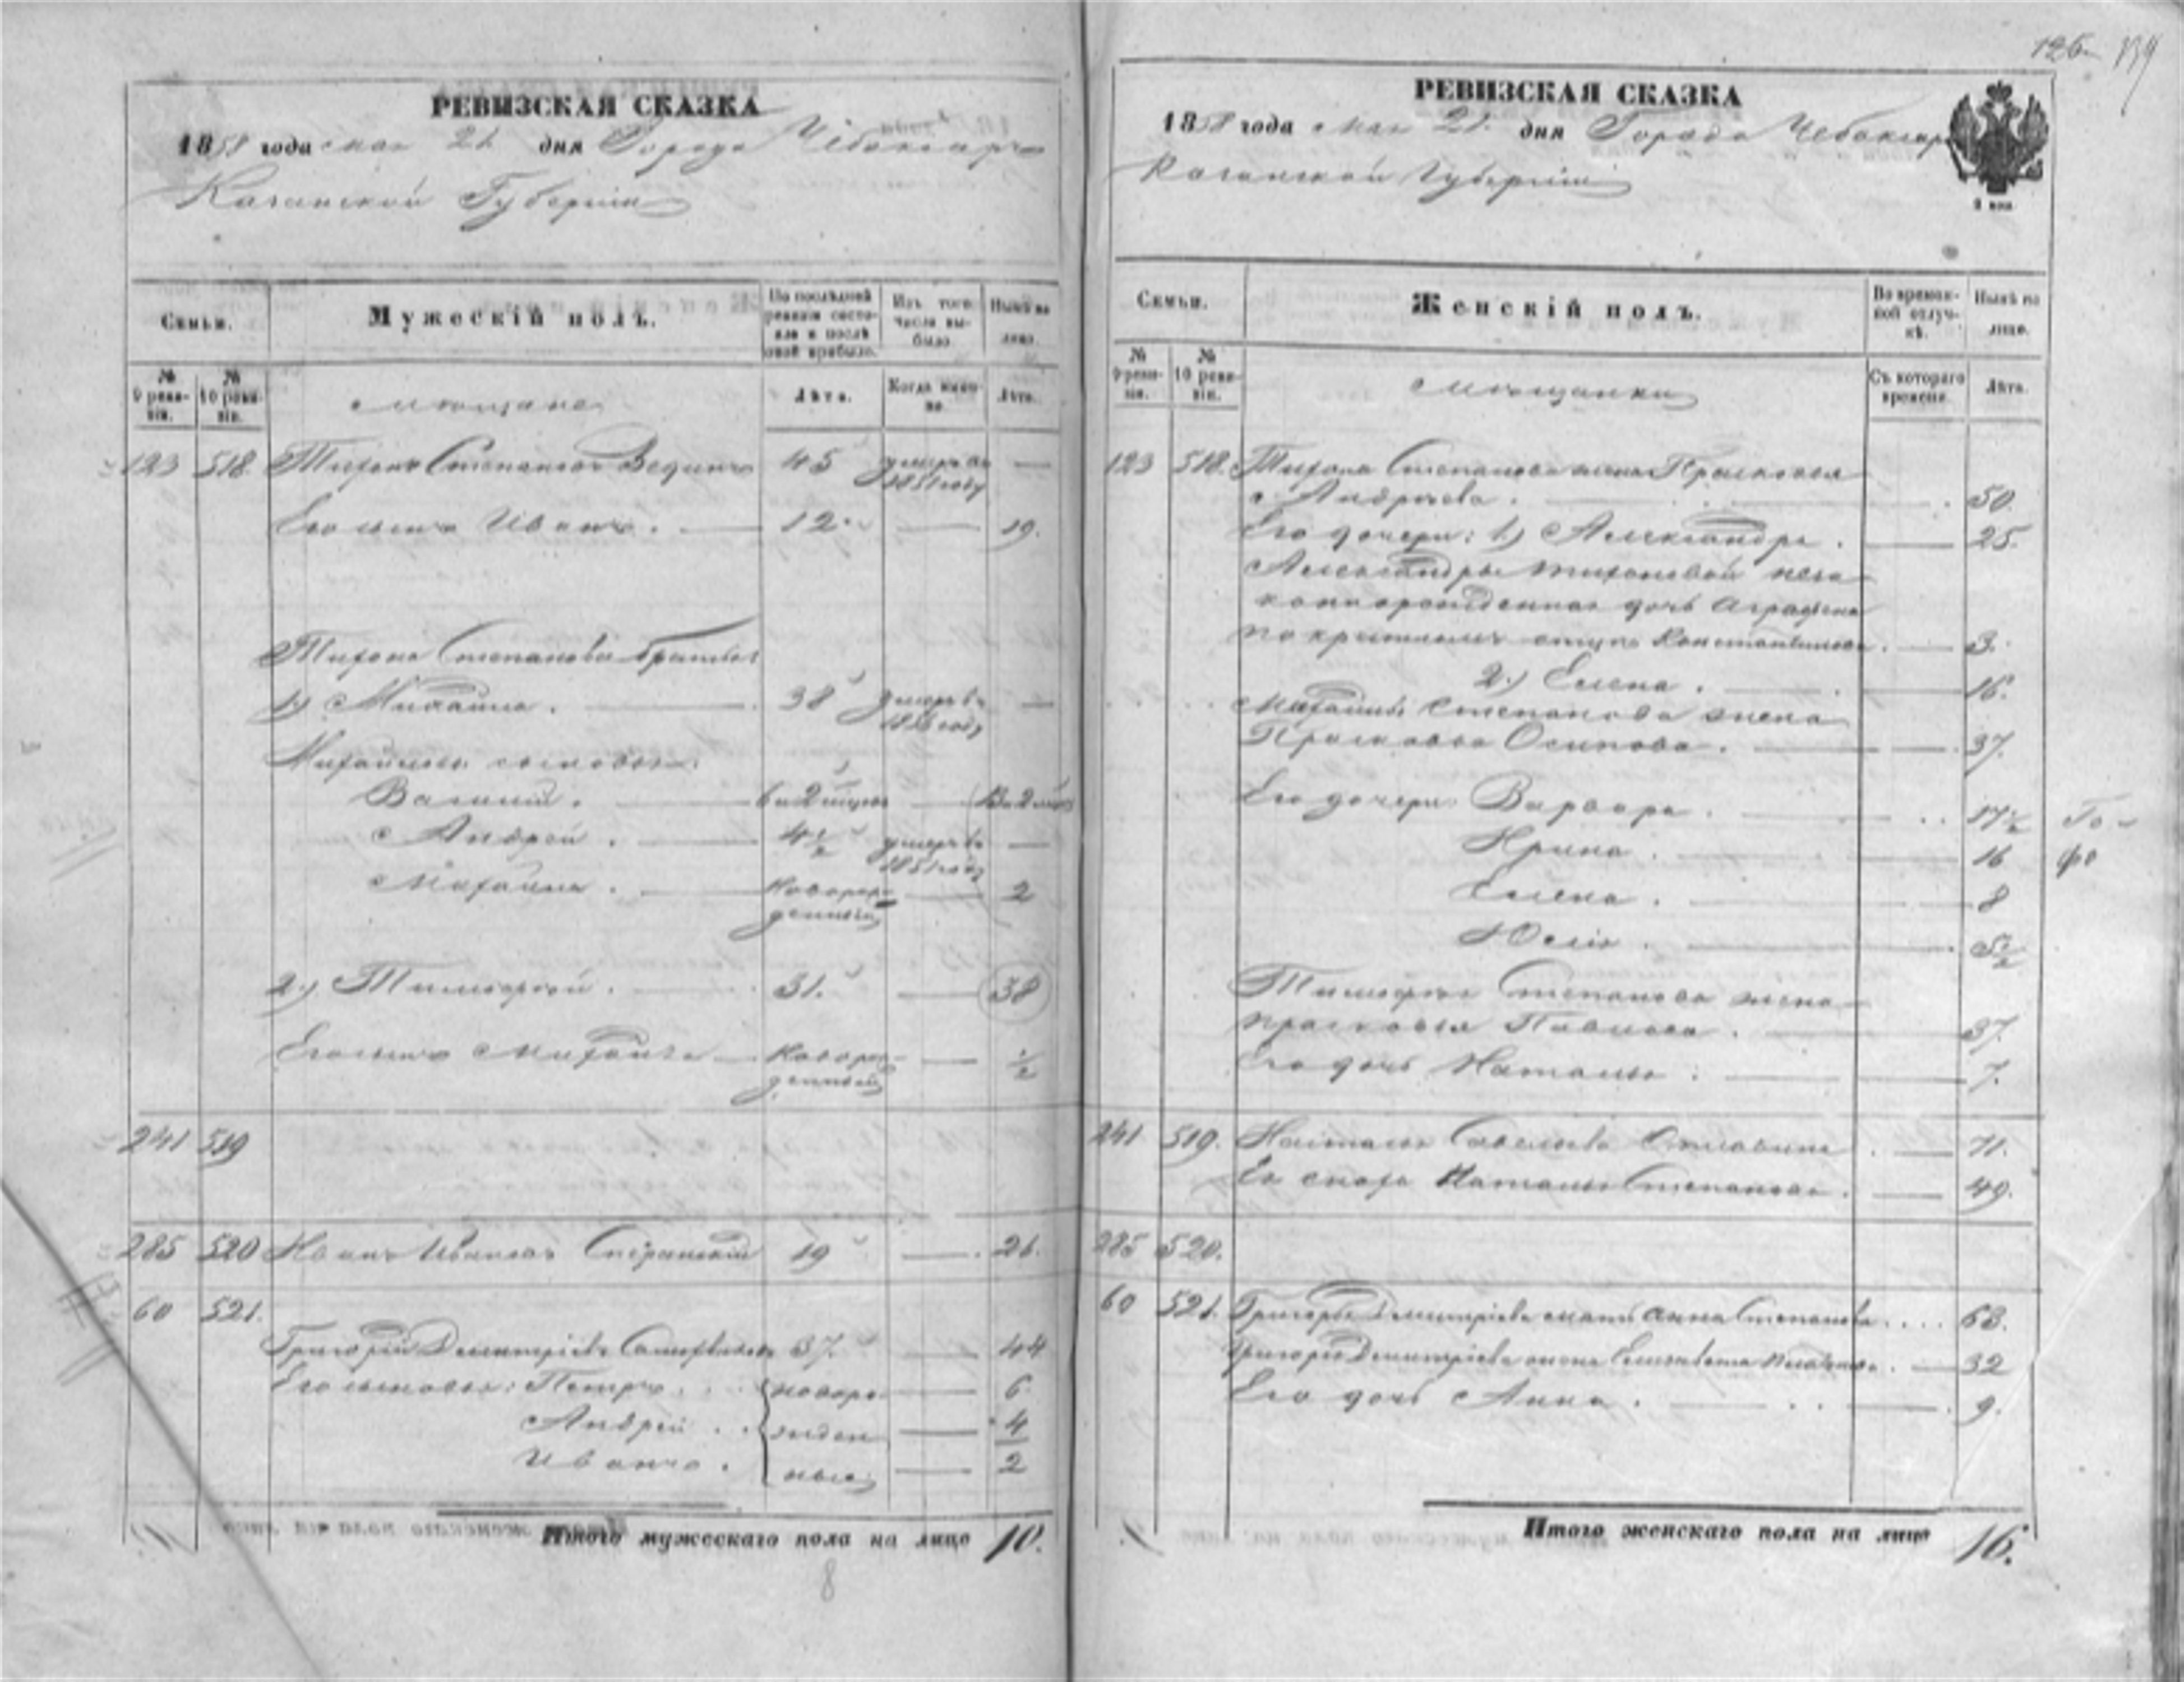 126
РЕВИЗСКАЯ СКАЗКА
1858 года мая 21 дня Города Чебоксаръ
Казанской Губернiи
Семьи.
Мужескiй полъ.
По послѣдней ревизiи состояло и послѣ оной прибыло.
Изъ того числа выбыло.
Нынѣ на лицо.
№ 9 ревизiи.
№ 10 ревизiи.
мѣщане
Лѣта.
Когда именно.
Лѣта.
123 518. Тихонъ Степановъ 45 умеръ въ 1851 году —
Его сынъ Иванъ. — 12. — 19.
Тихона Степанова братья
1.) Михайла. — 38 умеръ въ —
Михайловы сыновья:
Василiй.
Андрей. — 4½ умеръ въ 1851 году —
Михайла. — новорожденный — 2
2.) Тимофей. — 31. — 38
Его сынъ Михайла — новорожденный — ½
241 519
285 520 Иванъ Ивановъ 19 — 26.
60 521.
Григорiй Димитрiевъ 37. — 44
Его сыновья: Петръ. новоро — 6
Андрей . . жден — 4
Иванъ. ные — 2
Итого мужескаго пола на лицо 10.
8
РЕВИЗСКАЯ СКАЗКА
1858 года мая 21. дня Города Чебоксаръ
Казанской Губернiи
Семьи.
Женскiй полъ.
Во временной отлучкѣ.
Нынѣ на лицо.
№ 9 ревизiи.
№ 10 ревизiи.
мѣщанки
Съ котораго времени.
Лѣта.
123 518. Тихона Степанова жена Прасковья
Андреева. — 50.
Его дочери: 1.) Александра. — 25.
Александры Тихоновой неза-
коннорожденная дочь Аграфена
по крестному отцу Константинова. — 3.
2.) Елена. — 16.
Михайлы Степанова жена
Прасковья Осипова. — 37.
Его дочери: Варвара. — 17½
Ирина. — 16
Елена. — 8
Юлiя. — 5½
Тимофея Степанова жена
Прасковья Павлова. — 37.
Его дочь Наталья. — 7.
241 519. Наталья Савельева — 71.
Ея сноха Наталья Степанова. — 49.
285 520.
60 521. Григорья Димитрiева мать Анна Степанова. . . . 63.
Григорья Димитрiева жена Елизавета — 32
Его дочь Анна. — 9.
Итого женскаго пола на лицо 16.